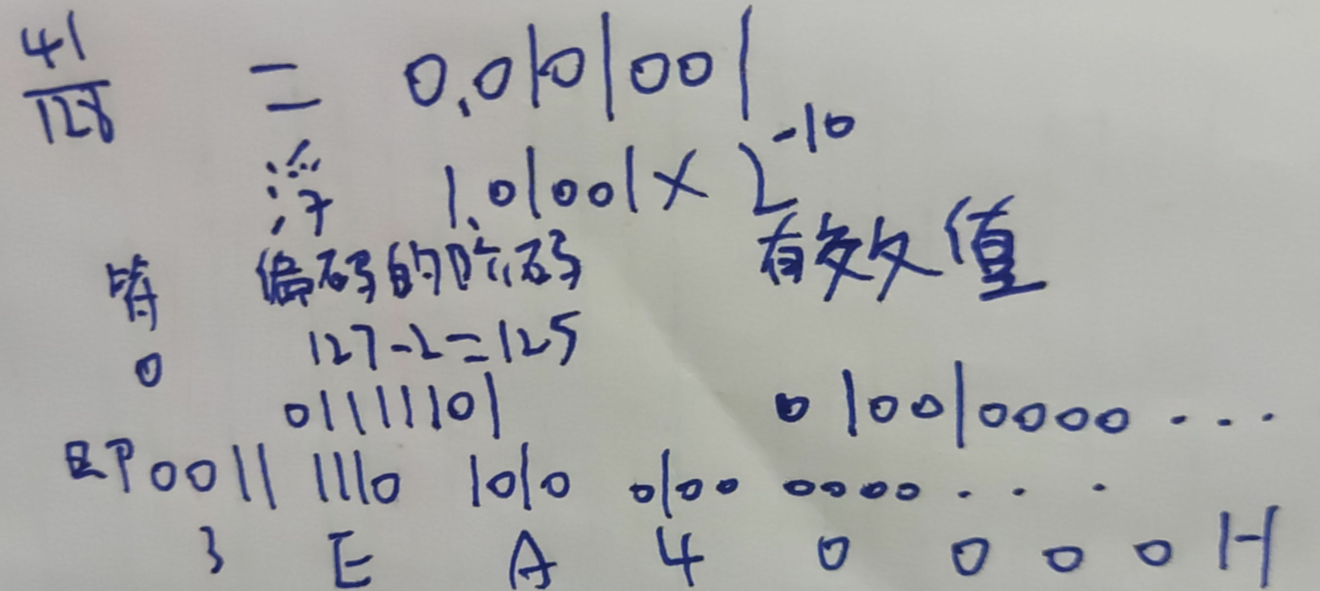 41/128 = 0.0101001
浮 1.01001×2^-10
阶 偏码的阶码 有效值
0 127-2=125
01111101 010010000...
即0011 1110 1010 0100 0000...
3 E A 4 0 0 0 0 H